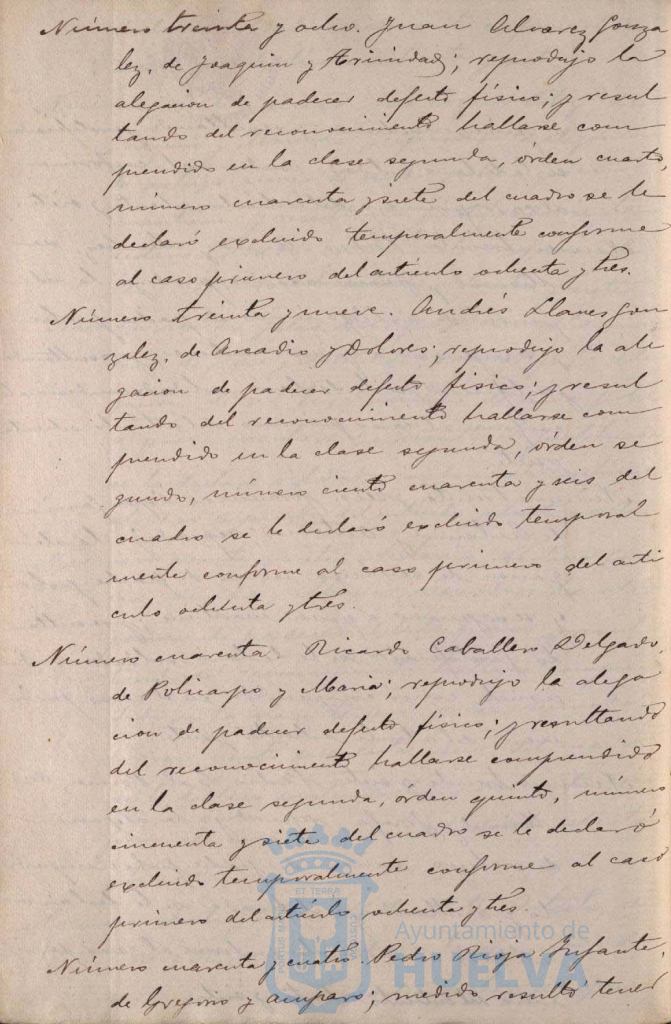 Número treinta y ocho. Juan Alvarez Gonza
lez, de Joaquin y Trinidad; reprodujo la
alegacion de padecer defecto físico; y resul
tando del reconocimiento hallarse com
prendido en la clase segunda, órden cuarto,
número cuarenta y siete del cuadro se le
declaró excluido temporalmente conforme
al caso primero del artículo ochenta y tres.
Número treinta y nueve. Andrés Llanes Gon
zalez, de Arcadio y Dolores; reprodujo la ale
gacion de padecer defecto físico; y resul
tando del reconocimiento hallarse com
prendido en la clase segunda, órden se
gundo, número ciento cuarenta y seis del
cuadro se le declaró excluido temporal
mente conforme al caso primero del artí
culo ochenta y tres.
Número cuarenta. Ricardo Caballero Delgado,
de Policarpo y Maria; reprodujo la alega
cion de padecer defecto físico; y resultando
del reconocimiento hallarse comprendido
en la clase segunda, órden quinto, número
cincuenta y siete del cuadro se le declaró
excluido temporalmente conforme al caso
primero del artículo ochenta y tres.
Número cuarenta y cuatro. Pedro Rioja Infante,
de Gregorio y Amparo; medido resultó tener
ET TERRA
Ayuntamiento de
HUELVA